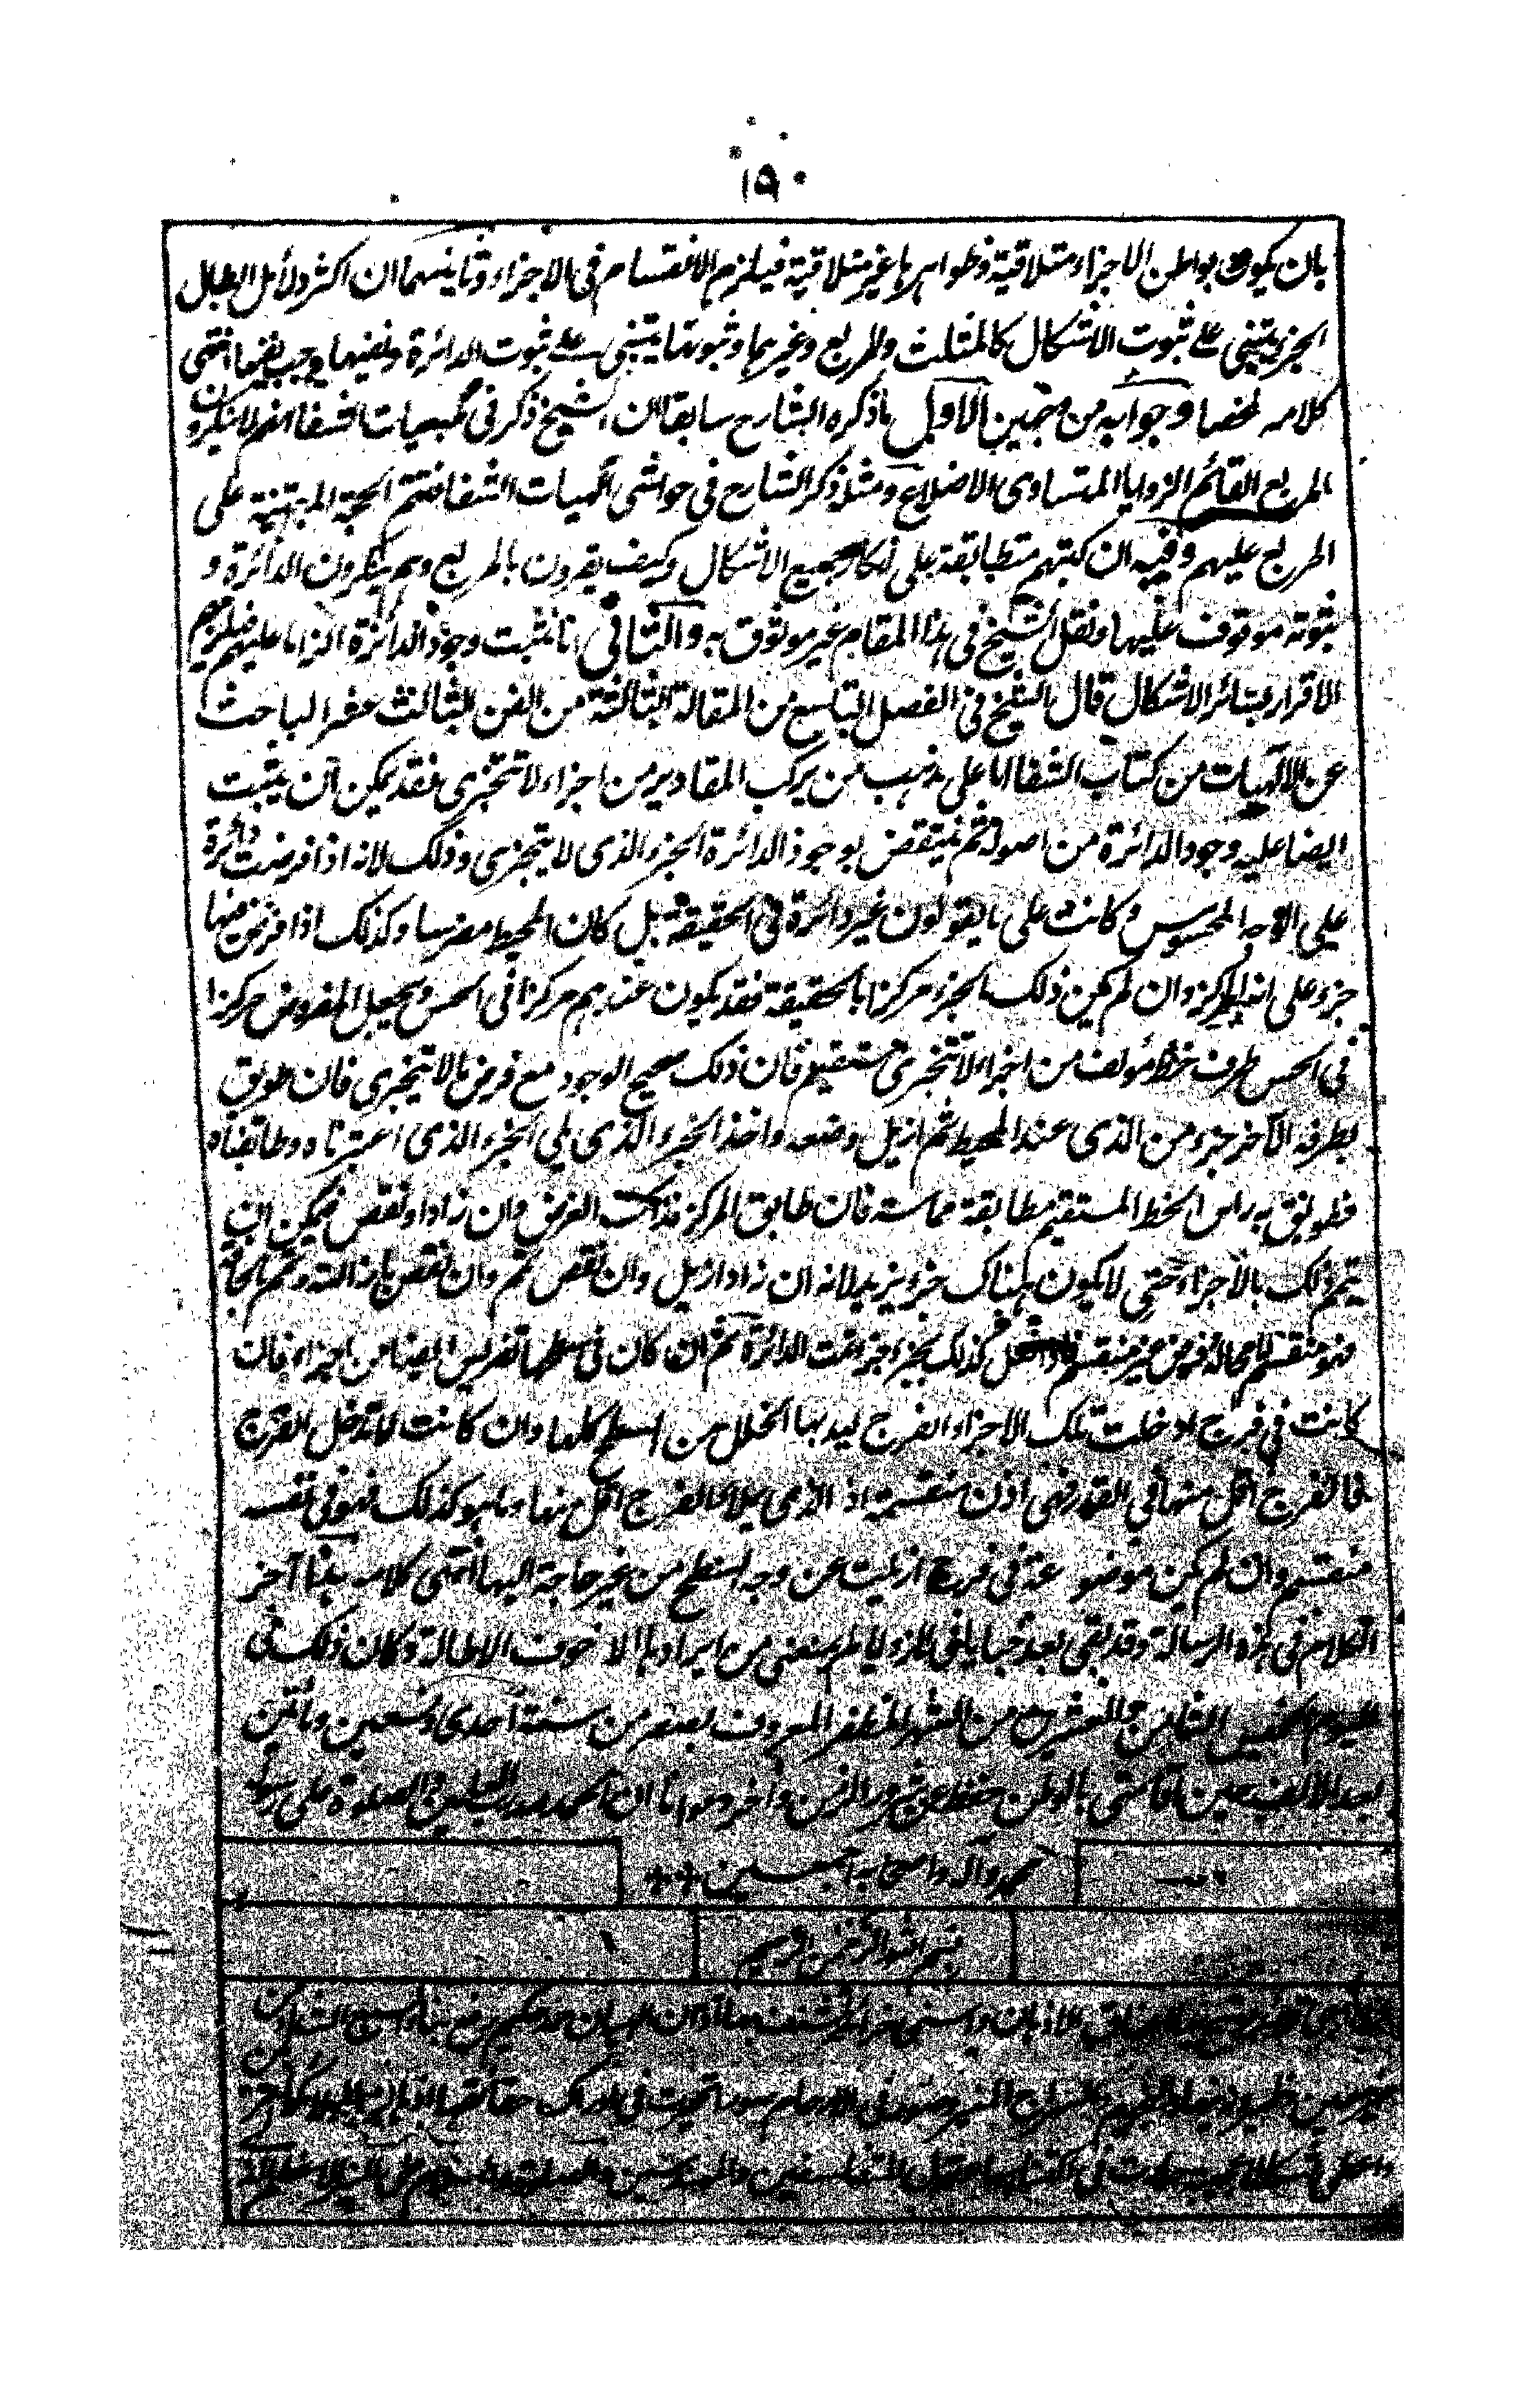 ١٩٠
بان يكون بواطن الاجزاء متلاقية وظواهرها غير متلاقية فيلزم الانقسام فى الاجزاء وثانيهما ان اكثر دلائل ابطال
الجزء يبتنى على ثبوت الاشكال كالمثلث والمربع وغيرهما وثبوتها يبتنى على ثبوت الدائرة ونفيها يوجب نفيها انتهى
كلامه ملخصا وجوابه من وجهين الاول ما ذكره الشارح سابقا ان الشيخ ذكر فى طبعيات الشفا انهم لا ينكرون
المربع القائم الزوايا المتساوى الاضلاع ومثله ذكر الشارح فى حواشى الهيات الشفا فتتم الحجة المبتنية على
المربع عليهم وفيه ان كتبهم متطابقة على انكار جميع الاشكال وكيف يقرون بالمربع وهم ينكرون الدائرة و
ثبوته موقوف عليها ونقل الشيخ فى هذا المقام غير موثوق به والثانى انا نثبت وجود الدائرة الزاما عليهم فيلزمهم
الاقرار بسائر الاشكال قال الشيخ فى الفصل التاسع من المقالة الثالثة من الفن الثالث عشر الباحث
عن الالهيات من كتاب الشفا اما على مذهب من يركب المقادير من اجزاء لا تتجزى فقد يمكن ان يثبت
ايضا عليه وجود الدائرة من اصوله ثم ينتقض بوجود الدائرة الجزء الذى لا يتجزى وذلك لانه اذا فرضت دائرة
على الوجه المحسوس وكانت على ما يقولون غير دائرة فى الحقيقة بل كان المحيط مضرسا وكذلك اذا فرض منها
جزء على انه المركز وان لم يكن ذلك الجزء مركزا بالحقيقة فقد يكون عندهم مركزا فى الحس ويجعل المفروض مركزا
فى الحس طرف خط مؤلف من اجزاء لا تتجزى مستقيم فان ذلك صحيح الوجود مع فرض ما لا يتجزى فان طوبق
بطرفه الآخر جزء من الذى عند المحيط ثم ازيل وضعه واخذ الجزء الذى يلى الجزء الذى اعتبرناه وطابقناه
فطوبق به راس الخط المستقيم مطابقة مماسة فان طابق المركز فذلك الغرض وان زاد او نقص فيمكن ان
يتم ذلك بالاجزاء حتى لا يكون هناك جزء يزيد لانه ان زاد ازيل وان نقص تمم وان نقص بازالته وتمم بالحاقه
فهو منقسم لا محالة وفرض غير منقسم فاذا فعل كذلك بجزء جزء تمت الدائرة ثم ان كان فى سطحها تضريس ايضا من اجزاء فان
كانت فى فرج ادخلت تلك الاجزاء الفرج ليسد بها الخلل من السطح كلها وان كانت لا تدخل الفرج
فالفرج اقل منها فى القدر فهى اذن منقسمة اذ الذى يملأ الفرج اقل منها وما هو كذلك فهو فى نفسه
منقسم وان لم يكن موضوعة فى فرج ازيلت عن وجه السطح من غير حاجة اليها انتهى كلامه هذا آخر
الكلام فى هذه الرسالة وقد بقى بعد خبايا فى الزوايا لم يمنعنى من ايرادها الا خوف الاطالة وكان ذلك فى
اليوم الخميس الثامن والعشرين من الشهر المظفر المعروف بصفر من سنة احدى وتسعين ومائتين
بعد الالف حين اقامتى بالوطن حفظ عن شرور الزمن وآخر دعوانا ان الحمد لله رب العلمين والصلوة على رسوله
محمد وآله واصحابه اجمعين ++
بسم الله الرحمن الرحيم